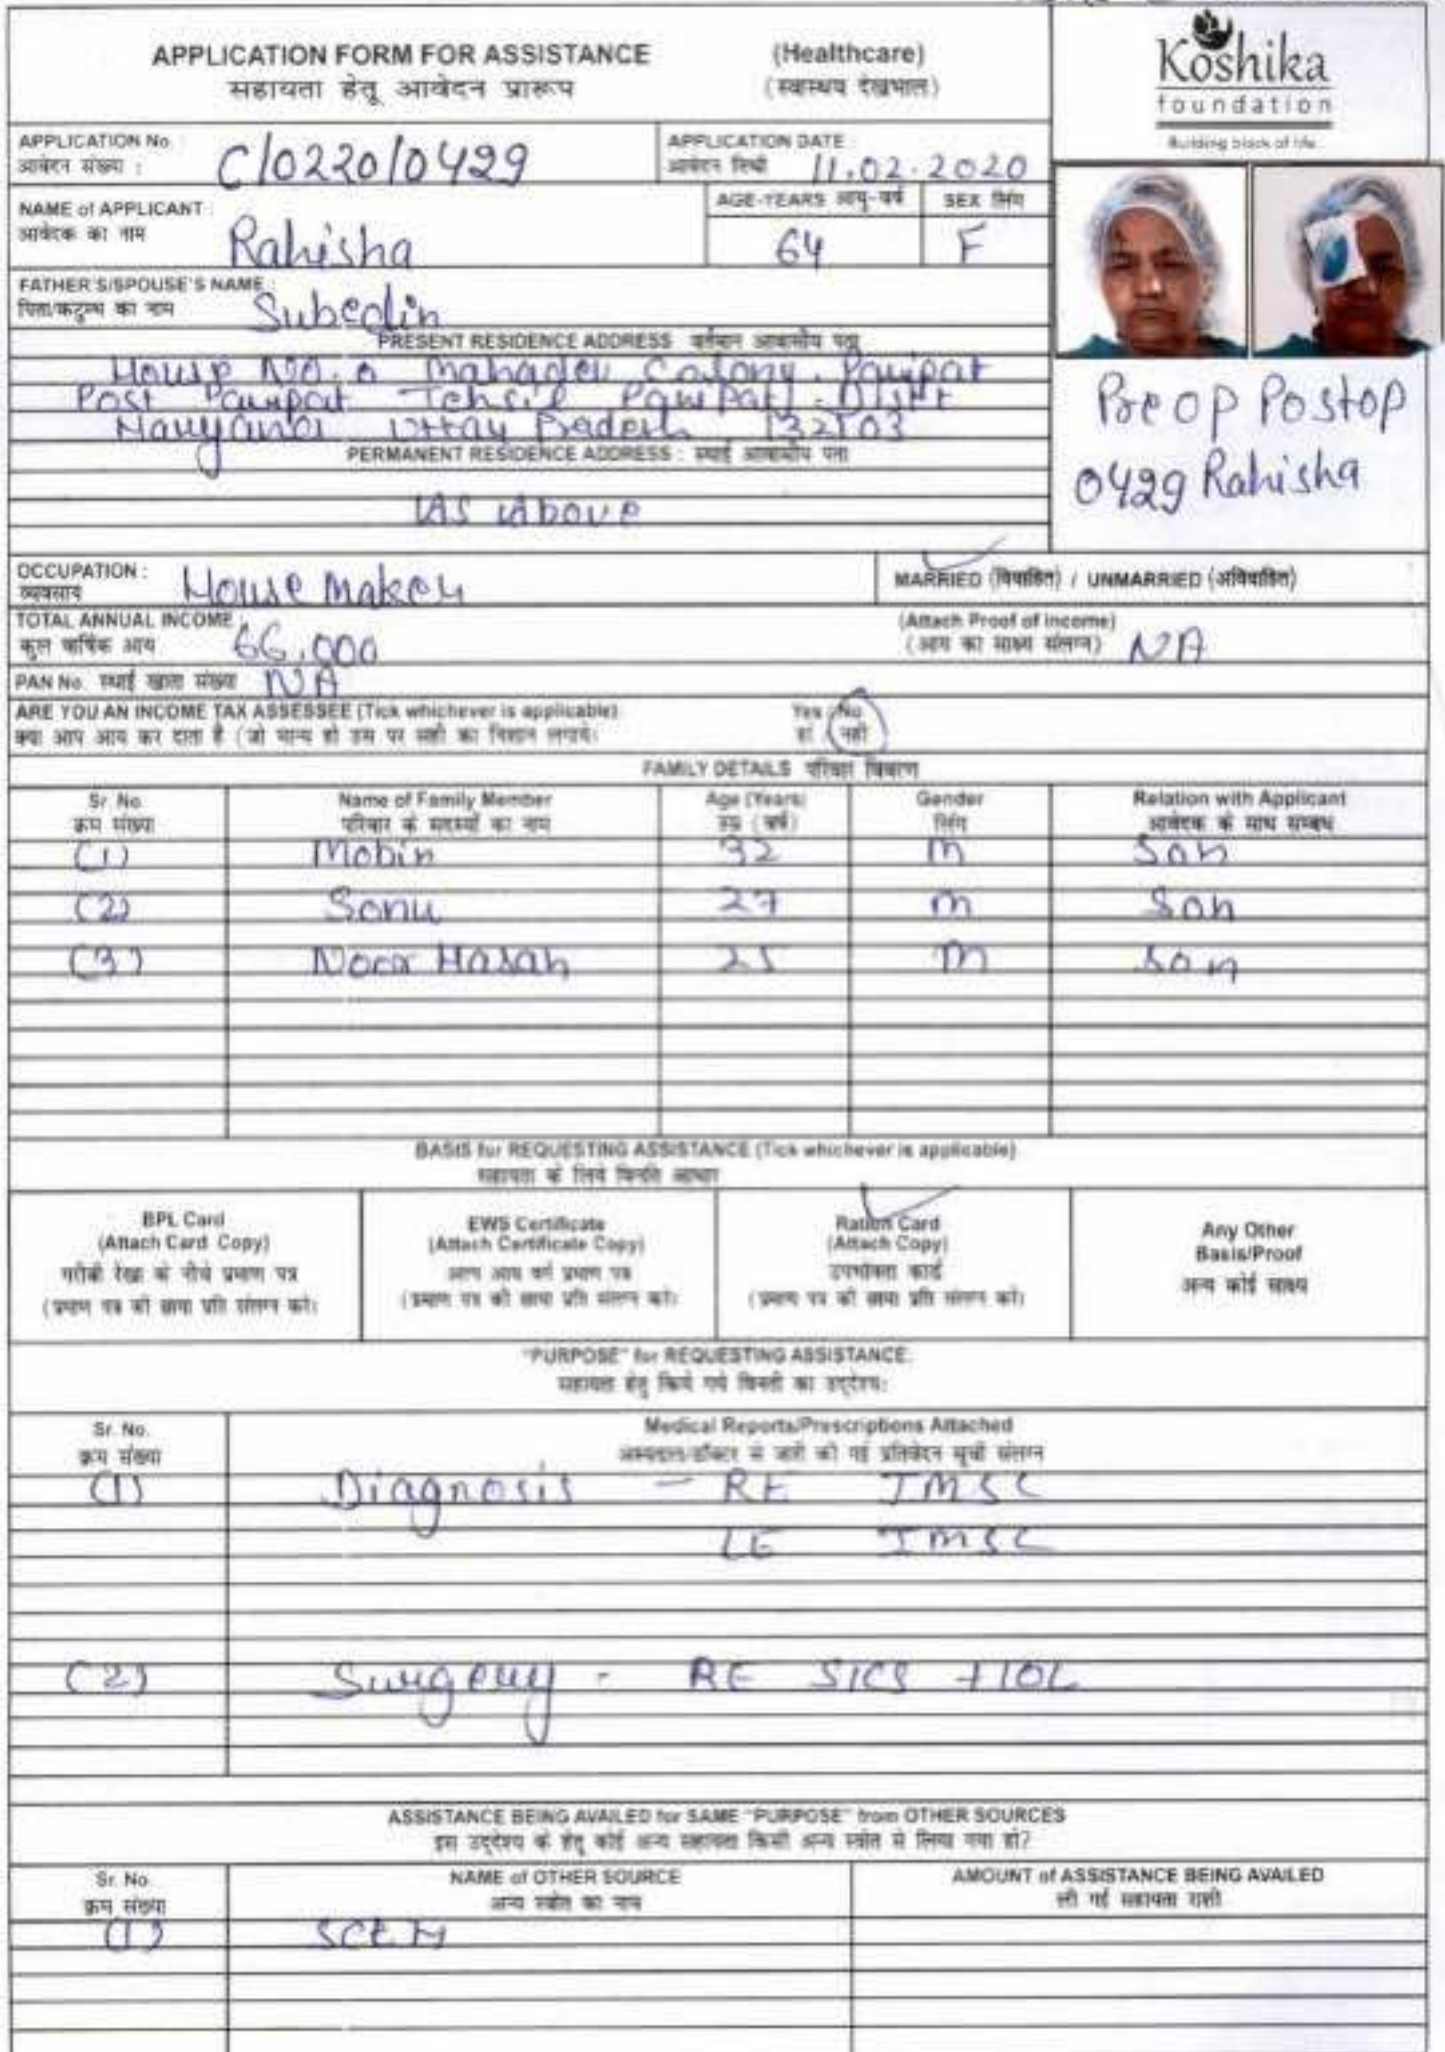 APPLICATION FORM FOR ASSISTANCE (Healthcare)
सहायता हेतू आवेदन प्रारूप (स्वास्थय देखभाल)
Koshika
foundation
Building block of life
APPLICATION No :
आवेदन संख्या : C/0220/0429
APPLICATION DATE :
आवेदन तिथी 11.02.2020
NAME of APPLICANT :
आवेदक का नाम Rahisha
AGE-YEARS आयु-वर्ष 64
SEX लिंग F
FATHER'S/SPOUSE'S NAME :
पिता/कटुम्ब का नाम Subedin
PRESENT RESIDENCE ADDRESS वर्तमान आवासीय पता
House No. 0 Mahadev Colony. Panipat
Post Panipat Tehsil Panipat. Distt
Haryana Uttar Pradesh 132103
PERMANENT RESIDENCE ADDRESS : स्थाई आवासीय पता
As Above
Preop Postop
0429 Rahisha
OCCUPATION :
व्यवसाय House Maker
MARRIED (विवाहित) / UNMARRIED (अविवाहित)
TOTAL ANNUAL INCOME :
कुल वार्षिक आय 66,000
(Attach Proof of Income)
(आय का साक्ष्य संलग्न) NA
PAN No. स्थाई खाता संख्या NA
ARE YOU AN INCOME TAX ASSESSEE (Tick whichever is applicable) Yes / No
क्या आप आय कर दाता है (जो मान्य हो उस पर सही का निशान लगाये) हां / नही
FAMILY DETAILS परिवार विवरण
Sr. No. Name of Family Member Age (Years) Gender Relation with Applicant
क्रम संख्या परिवार के सदस्यों का नाम उम्र (वर्ष) लिंग आवेदक के साथ सम्बंध
(1) Mobin 32 M Son
(2) Sonu 27 M Son
(3) Noor Hasan 25 M Son
BASIS for REQUESTING ASSISTANCE (Tick whichever is applicable)
सहायता के लिये विनति आधार
BPL Card
(Attach Card Copy)
गरीबी रेखा के नीचे प्रमाण पत्र
(प्रमाण पत्र की छाया प्रति संलग्न करें)
EWS Certificate
(Attach Certificate Copy)
अल्प आय वर्ग प्रमाण पत्र
(प्रमाण पत्र की छाया प्रति संलग्न करें)
Ration Card
(Attach Copy)
उपभोक्ता कार्ड
(प्रमाण पत्र की छाया प्रति संलग्न करें)
Any Other
Basis/Proof
अन्य कोई साक्ष्य
"PURPOSE" for REQUESTING ASSISTANCE:
सहायता हेतु किये गये विनती का उद्देश्य:
Sr. No. Medical Reports/Prescriptions Attached
क्रम संख्या अस्पताल/डॉक्टर से जारी की गई प्रतिवेदन सूची संलग्न
(1) Diagnosis - RE IMSC
LE IMSC
(2) Surgery - RE SICS +IOL
ASSISTANCE BEING AVAILED for SAME "PURPOSE" from OTHER SOURCES
इस उद्देश्य के हेतु कोई अन्य सहायता किसी अन्य स्त्रोत से लिया गया हो?
Sr. No. NAME of OTHER SOURCE AMOUNT of ASSISTANCE BEING AVAILED
क्रम संख्या अन्य स्त्रोत का नाम ली गई सहायता राशी
(1) SCEH